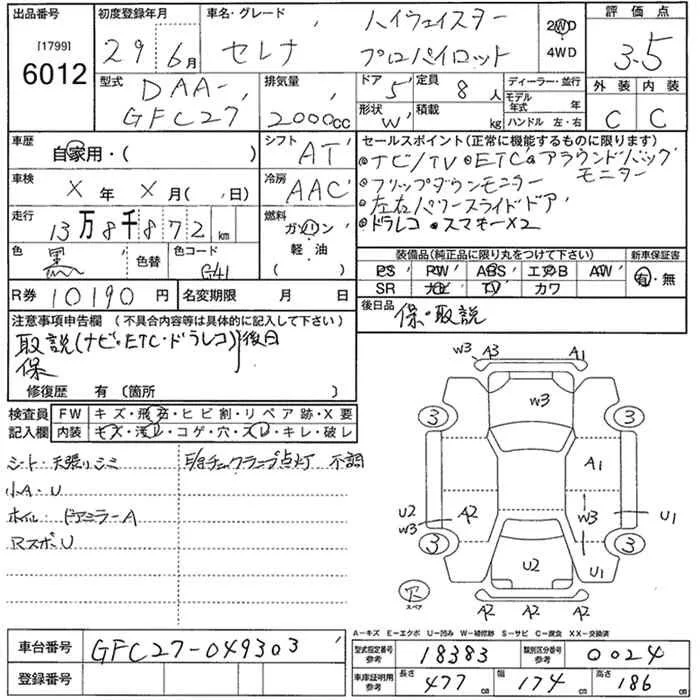 出品番号 [1799] 6012
初度登録年月 29年6月
車名・グレード セレナ ハイウェイスター プロパイロット
2WD 4WD
評価点 3.5
外装 内装
C C
型式 DAA-GFC27
排気量 2000cc
ドア 5
定員 8人
形状 W
積載 kg
ディーラー・並行
モデル年式 年
ハンドル 左・右
車歴 自家用・( )
シフト AT
車検 X年X月( 日)
冷房 AAC
走行 13万8千872km
燃料 ガソリン 軽・油 ( )
色 黒 色替
色コード G41
R券 10190円
名変期限 月 日
セールスポイント(正常に機能するものに限ります)
・ナビ/TV ・ETC ・アラウンドバックモニター
・フリップダウンモニター
・左右パワースライドドア
・ドラレコ ・スマキーX2
装備品(純正品に限り丸をつけて下さい)
PS PW ABS エアB AW
SR ナビ TV カワ
新車保証書 有・無
後日品 保・取説
注意事項申告欄(不具合内容等は具体的に記入して下さい)
取説(ナビ・ETC・ドラレコ)}後日
保
修復歴 有(箇所 )
検査員記入欄
FW キズ・飛石・ヒビ割・リペア跡・X要
内装 キズ・汚レ・コゲ・穴・スレ・キレ・破レ
シート・天張りシミ
小A・U
ホイル・ドアミラーA
RスポU
E/gチェックランプ点灯 不調
W3 A3 A1
W3
3 3
A1
U2 W3 A2 W3 U1
3 3
U2 U1
穴 スペア
A2 A2 A2
A-キズ E-エクボ U-凹み W-補修跡 S-サビ C-腐食 XX-交換済
車台番号 GFC27-049303
登録番号
型式指定番号 参考 18383
類別区分番号 参考 0024
車庫証明用 参考 長さ 477cm 幅 174cm 高さ 186cm